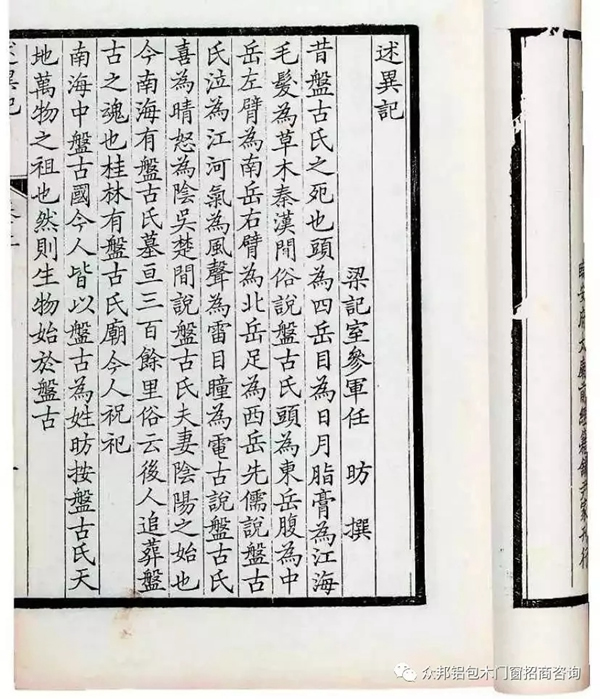 臨安府太廟前經籍鋪尹家刊行
述異記
梁記室參軍任 昉 撰
昔盤古氏之死也頭為四岳目為日月脂膏為江海
毛髮為草木秦漢閒俗說盤古氏頭為東岳腹為中
岳左臂為南岳右臂為北岳足為西岳先儒說盤古
氏泣為江河氣為風聲為雷目瞳為電古說盤古氏
喜為晴怒為陰吳楚閒說盤古氏夫妻陰陽之始也
今南海有盤古氏墓亘三百餘里俗云後人追葬盤
古之魂也桂林有盤古氏廟今人祝祀
南海中盤古國今人皆以盤古為姓昉按盤古氏天
地萬物之祖也然則生物始於盤古
述異記
众邦铝包木门窗招商咨询